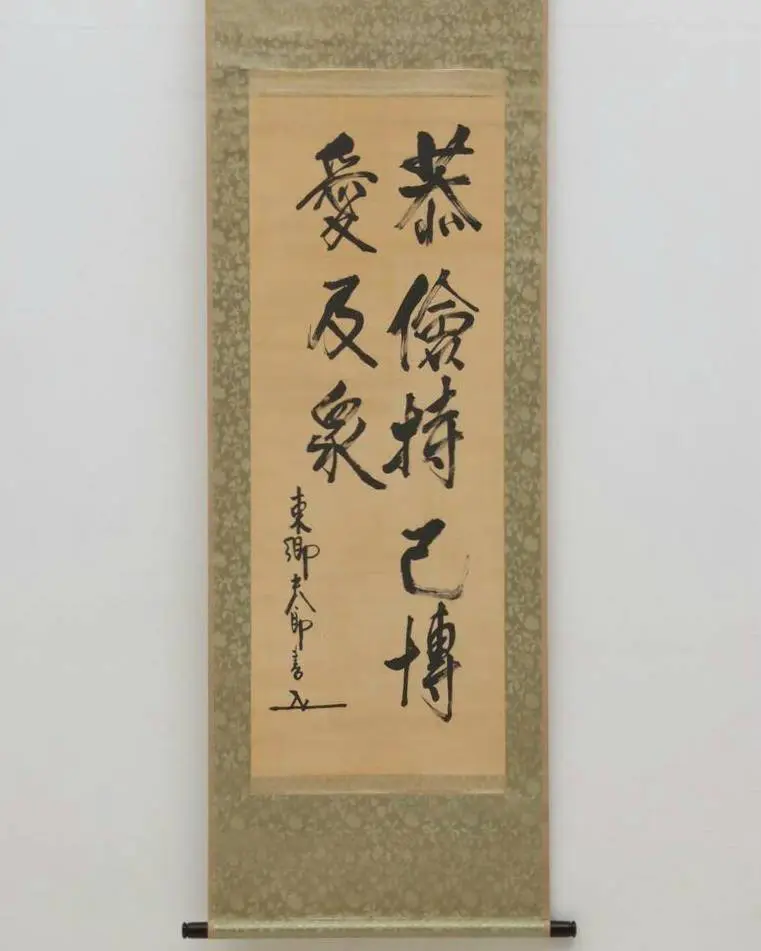 恭儉持己博
愛及衆
東郷吉太郎書